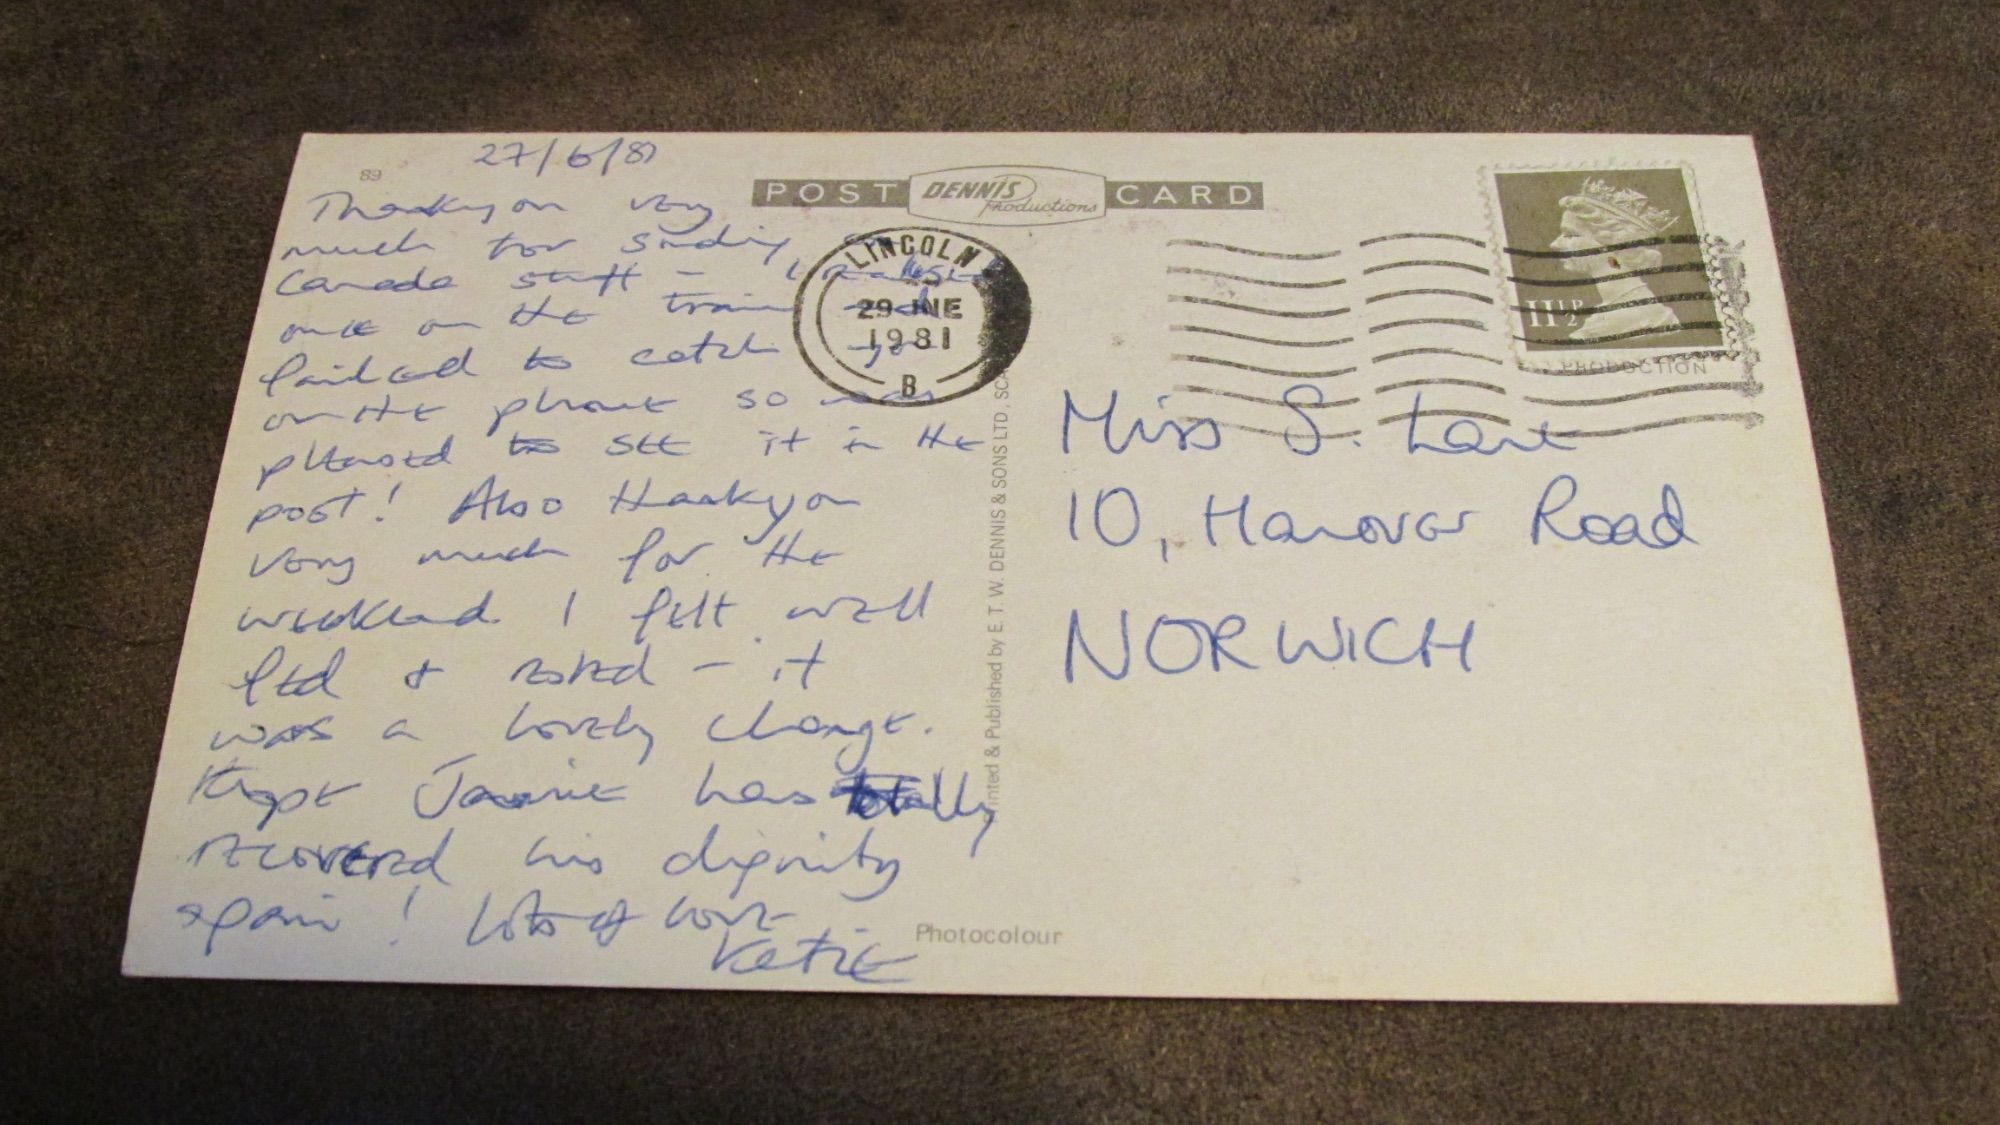 89
27/6/81
Thankyou very
much for sending
Canada stuff - I realised
once on the train and
failed to catch you
on the phone so was
pleased to see it in the
post! Also thankyou
very much for the
weekend. I felt well
fed & rested - it
was a lovely change.
Hope Jamie has totally
recovered his dignity
again! Lots of love
Katie
POST DENNIS Productions CARD
LINCOLN
29 JNE
1981
B
11½P
PRODUCTION
Miss S. Lane
10, Hanover Road
NORWICH
Printed & Published by E. T. W. DENNIS & SONS LTD, SCA
Photocolour